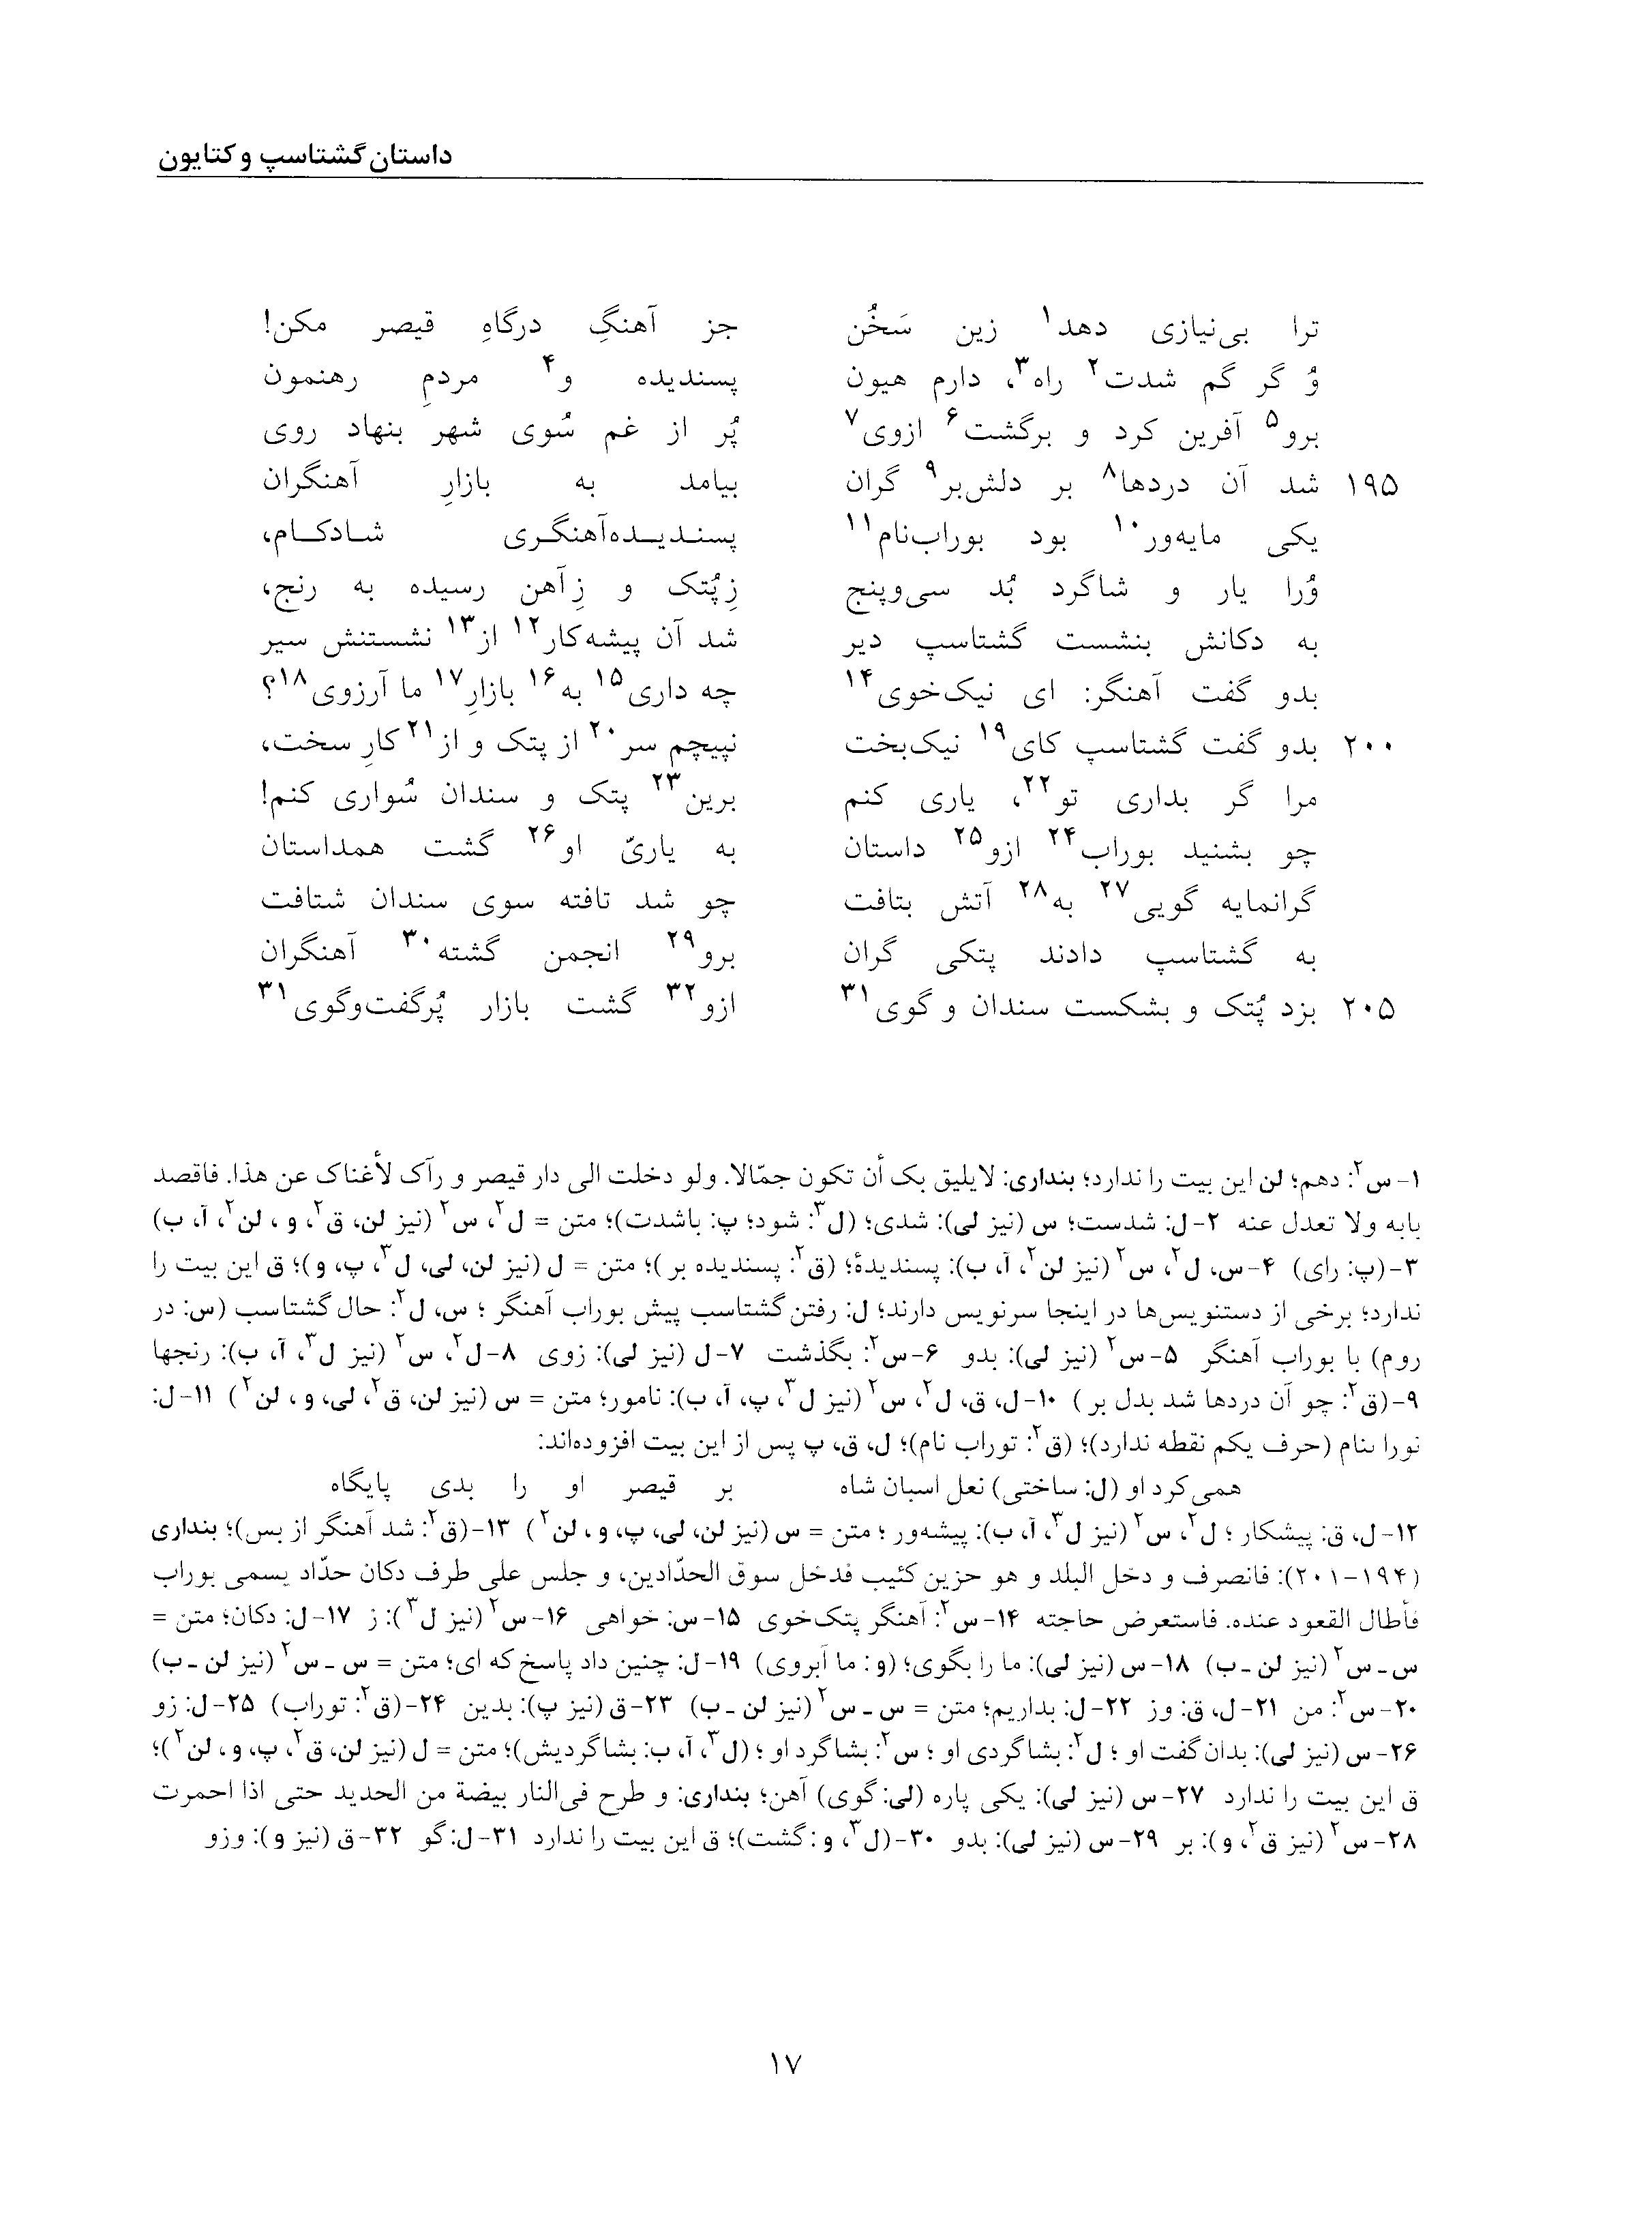 داستان گشتاسپ و کتایون
ترا بی‌نیازی دهد۱ زین سَخُن جز آهنگِ درگاهِ قیصر مکن!
وُ گر گم شدت۲ راه۳، دارم هیون پسندیده و۴ مردمِ رهنمون
برو۵ آفرین کرد و برگشت۶ ازوی۷ پُر از غم سُوی شهر بنهاد روی
۱۹۵ شد آن دردها۸ بر دلش‌بر۹ گران بیامد به بازارِ آهنگران
یکی مایه‌ور۱۰ بود بوراب‌نام۱۱ پسندیده‌آهنگری شادکام،
وُرا یار و شاگرد بُد سی‌وپنج زِپُتک و زِآهن رسیده به رنج،
به دکانش بنشست گشتاسپ دیر شد آن پیشه‌کار۱۲ از۱۳ نشستنش سیر
بدو گفت آهنگر: ای نیک‌خوی۱۴ چه داری۱۵ به۱۶ بازارِ۱۷ ما آرزوی۱۸؟
۲۰۰ بدو گفت گشتاسپ کای۱۹ نیک‌بخت نپیچم سر۲۰ از پتک و از۲۱ کارِ سخت،
مرا گر بداری تو۲۲، یاری کنم برین۲۳ پتک و سندان سُواری کنم!
چو بشنید بوراب۲۴ ازو۲۵ داستان به یاریّ او۲۶ گشت همداستان
گرانمایه گویی۲۷ به۲۸ آتش بتافت چو شد تافته سوی سندان شتافت
به گشتاسپ دادند پتکی گران برو۲۹ انجمن گشته۳۰ آهنگران
۲۰۵ بزد پُتک و بشکست سندان و گوی۳۱ ازو۳۲ گشت بازار پُرگفت‌وگوی۳۱
۱- س۲: دهم؛ لن این بیت را ندارد؛ بنداری: لایلیق بک أن تکون جمّالا. ولو دخلت الی دار قیصر و رآک لأغناک عن هذا. فاقصد
بابه ولا تعدل عنه ۲-ل: شدست؛ س (نیز لی): شدی؛ (ل۳: شود؛ پ: باشدت)؛ متن = ل۲، س۲ (نیز لن، ق۲، و، لن۲، آ، ب)
۳-(پ: رای) ۴-س، ل۲، س۲ (نیز لن۲، آ، ب): پسندیدهٔ؛ (ق۲: پسندیده بر)؛ متن = ل (نیز لن، لی، ل۳، پ، و)؛ ق این بیت را
ندارد؛ برخی از دستنویس‌ها در اینجا سرنویس دارند؛ ل: رفتن گشتاسب پیش بوراب آهنگر؛ س، ل۲: حال گشتاسب (س: در
روم) با بوراب آهنگر ۵-س۲ (نیز لی): بدو ۶-س۲: بگذشت ۷-ل (نیز لی): زوی ۸-ل۲، س۲ (نیز ل۳، آ، ب): رنجها
۹-(ق۲: چو آن دردها شد بدل بر) ۱۰-ل، ق، ل۲، س۲ (نیز ل۳، پ، آ، ب): نامور؛ متن = س (نیز لن، ق۲، لی، و، لن۲) ۱۱-ل:
نورا ٮنام (حرف یکم نقطه ندارد)؛ (ق۲: توراب نام)؛ ل، ق، پ پس از این بیت افزوده‌اند:
همی‌کرد او (ل: ساختی) نعل اسبان شاه بر قیصر او را بدی پایگاه
۱۲-ل، ق: پیشکار؛ ل۲، س۲ (نیز ل۳، آ، ب): پیشه‌ور؛ متن = س (نیز لن، لی، پ، و، لن۲) ۱۳-(ق۲: شد آهنگر از بس)؛ بنداری
(۱۹۴-۲۰۱): فانصرف و دخل البلد و هو حزین کئیب فدخل سوق الحدّادین، و جلس علی طرف دکان حدّاد یسمی بوراب
فأطال القعود عنده. فاستعرض حاجته ۱۴-س۲: آهنگر پتک‌خوی ۱۵-س: خواهی ۱۶-س۲ (نیز ل۳): ز ۱۷-ل: دکان؛ متن =
س-س۲ (نیز لن-ب) ۱۸-س (نیز لی): ما را بگوی؛ (و: ما آبروی) ۱۹-ل: چنین داد پاسخ که ای؛ متن = س-س۲ (نیز لن-ب)
۲۰-س۲: من ۲۱-ل، ق: وز ۲۲-ل: بداریم؛ متن = س-س۲ (نیز لن-ب) ۲۳-ق (نیز پ): بدین ۲۴-(ق۲: توراب) ۲۵-ل: زو
۲۶-س (نیز لی): بدان گفت او؛ ل۲: بشاگردی او؛ س۲: بشاگرد او؛ (ل۳، آ، ب: بشاگردیش)؛ متن = ل (نیز لن، ق۲، پ، و، لن۲)؛
ق این بیت را ندارد ۲۷-س (نیز لی): یکی پاره (لی: گوی) آهن؛ بنداری: و طرح فی‌النار بیضة من الحدید حتی اذا احمرت
۲۸-س۲ (نیز ق۲، و): بر ۲۹-س (نیز لی): بدو ۳۰-(ل۳، و: گشت)؛ ق این بیت را ندارد ۳۱-ل: گو ۳۲-ق (نیز و): وزو
۱۷